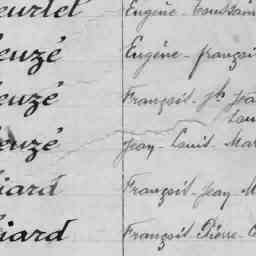 eurtel Eugène - Toussain
euzé Eugène - françoi
euzé François - Jh Jea
Loui
euzé Jean - Louis - Mar
iard François - Jean M
iard François - Pierre -